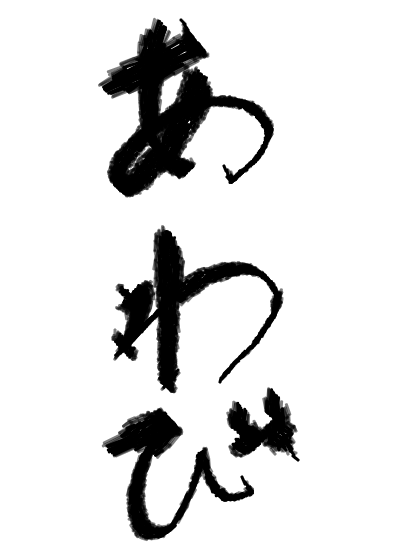 あわび